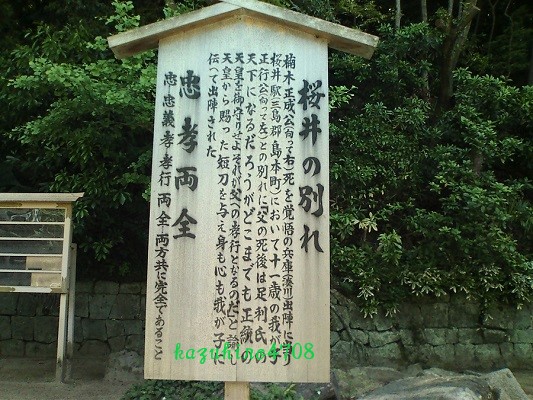 桜井の別れ
楠木正成(公向って右)死を覚悟の兵庫(湊川)出陣に
桜井駅(三島郡島本町)において十一歳の我が子
正行(公向って左)との別れに「父の死後は足利氏の
天下になるだろうがどこまでも正統の
天皇を御守りせよそれが父への孝行となるのだ」と諭し
天皇から賜った短刀を与え身も心も我が子に
伝て出陣された
忠孝両全
忠 忠義 孝 孝行 両全 両方共に完全であること
kazuhiro4708